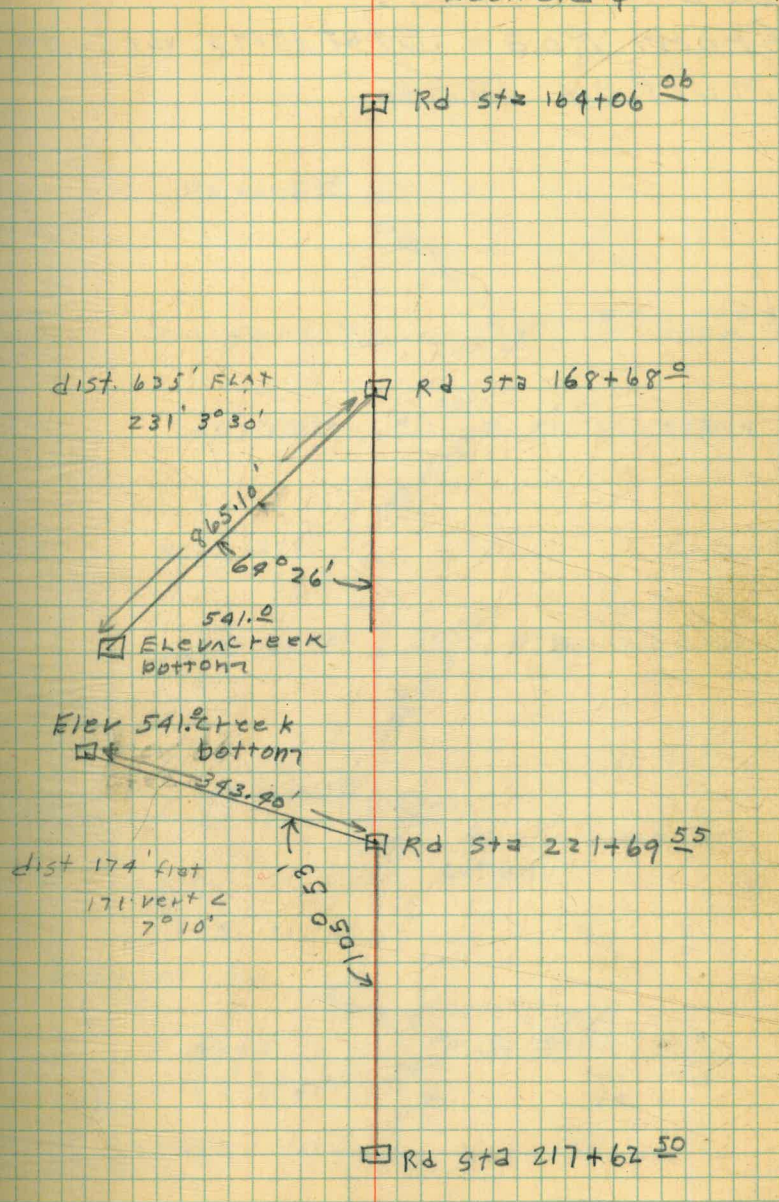 Rd sta 164+06 06
dist. 635' FLAT
231' 3°30'
Rd sta 168+68 0
865.10'
64°26'
541.0
Elev creek
bottom
Elev 541.0 creek
bottom
343.40'
Rd sta 221+69 55
dist 174' flat
171 vert <
7°10'
105° 53'
Rd sta 217+62 50